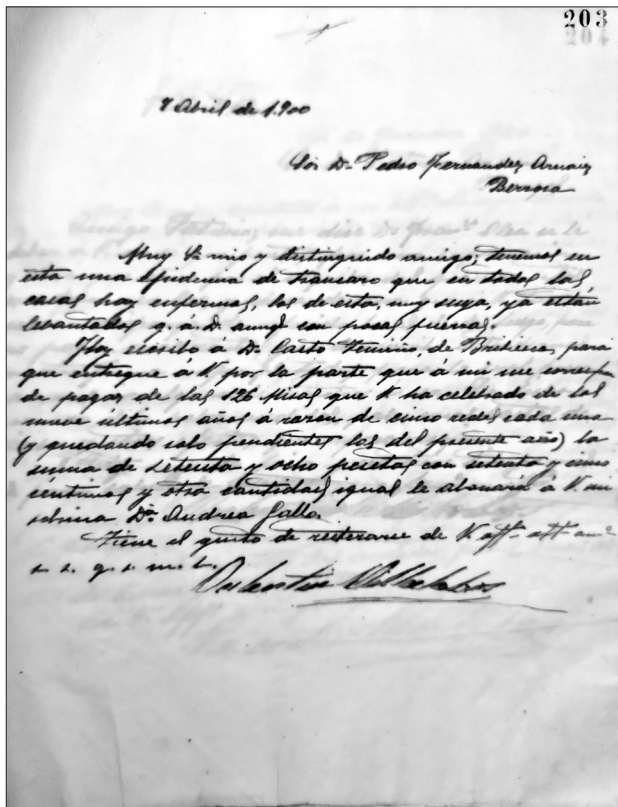 203
204
7 Abril de 1.900
Sor D. Pedro Fernandez Arnaiz
Berzosa
Muy Sr mio y distinguido amigo; tenemos en
esta una epidemia de trancazo que en todas las
casas hay enfermos, los de esta, muy suya, ya están
levantados g. á D. aunq con pocas fuerzas.
Hoy escribo á D. Casto de Bribiesca, para
que entregue á V. por la parte que á mi me corresp.
de pagar de las 126 Misas que V. ha celebrado de los
nueve últimos años á razón de cinco reales cada una
(y quedando solo pendientes las del presente año) la
suma de setenta y ocho pesetas con setenta y cinco
céntimos y otra cantidad igual le abonará á V. mi
sobrina Da. Andrea Gallo.
Tiene el gusto de reiterarse de V. aff. att am.
s. s. q. s. m. b.
Villalobos